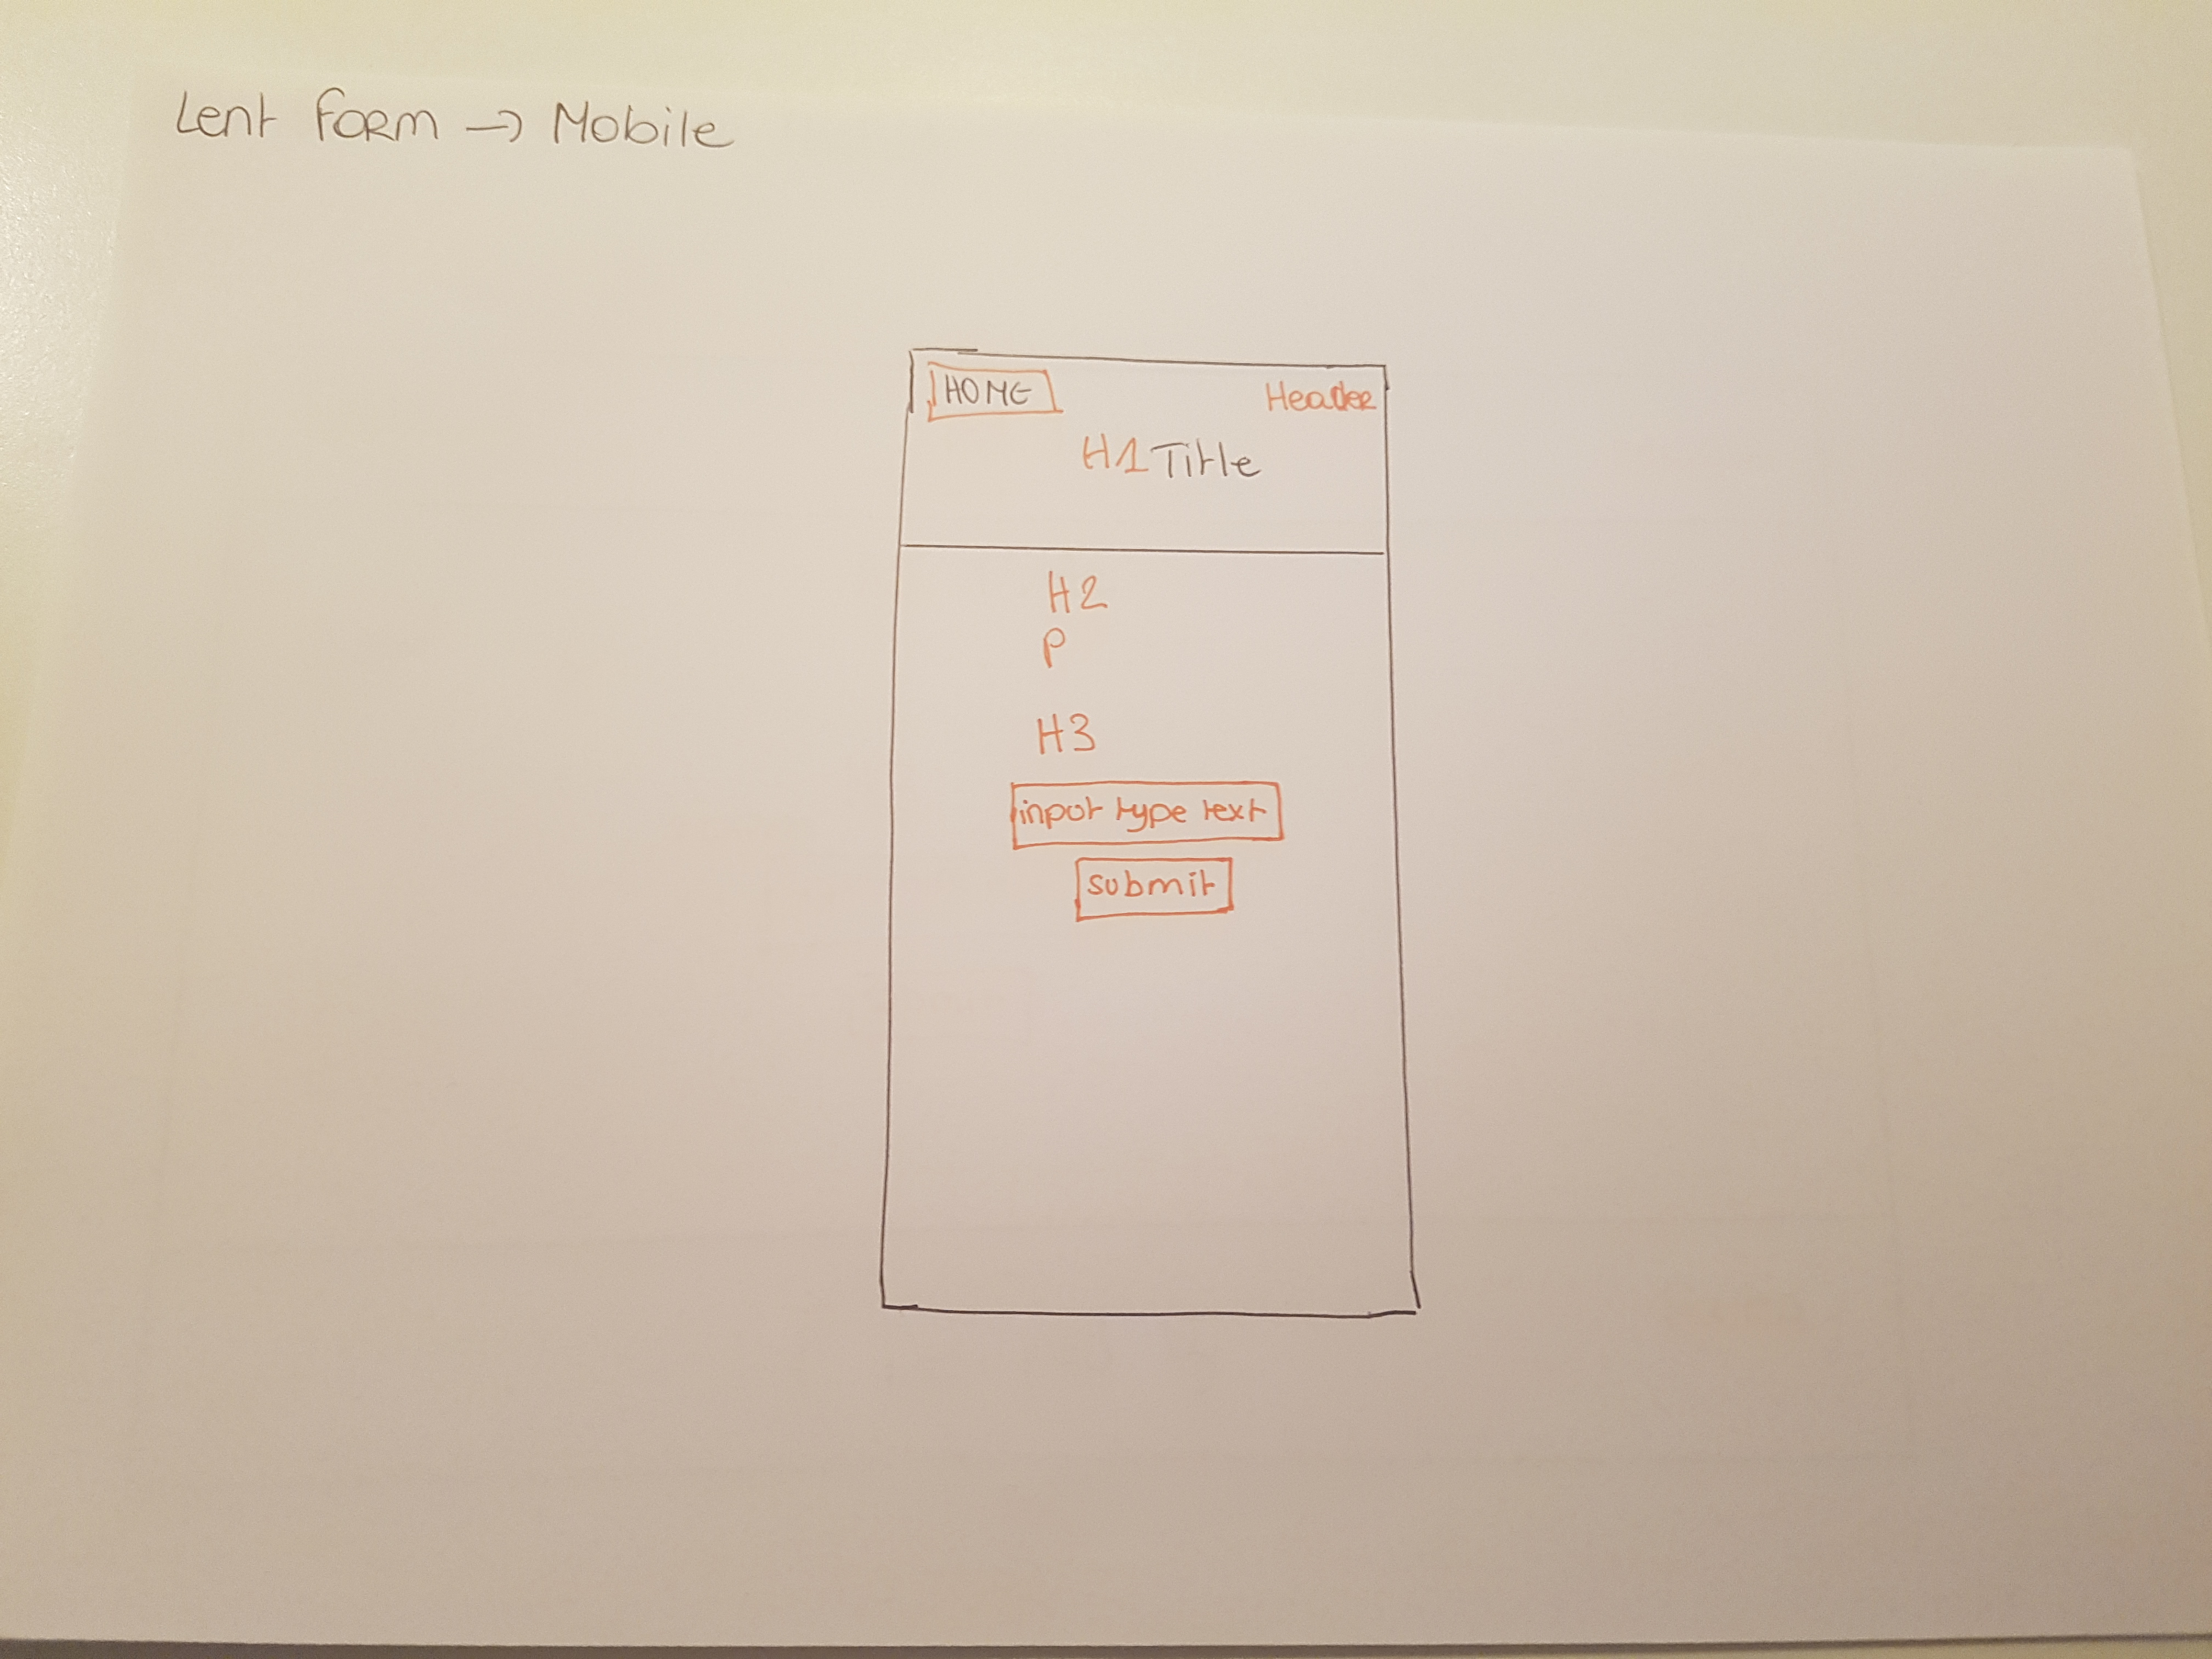 Lent Form → Mobile
HOME Header
H1 Title
H2
P
H3
input type text
submit